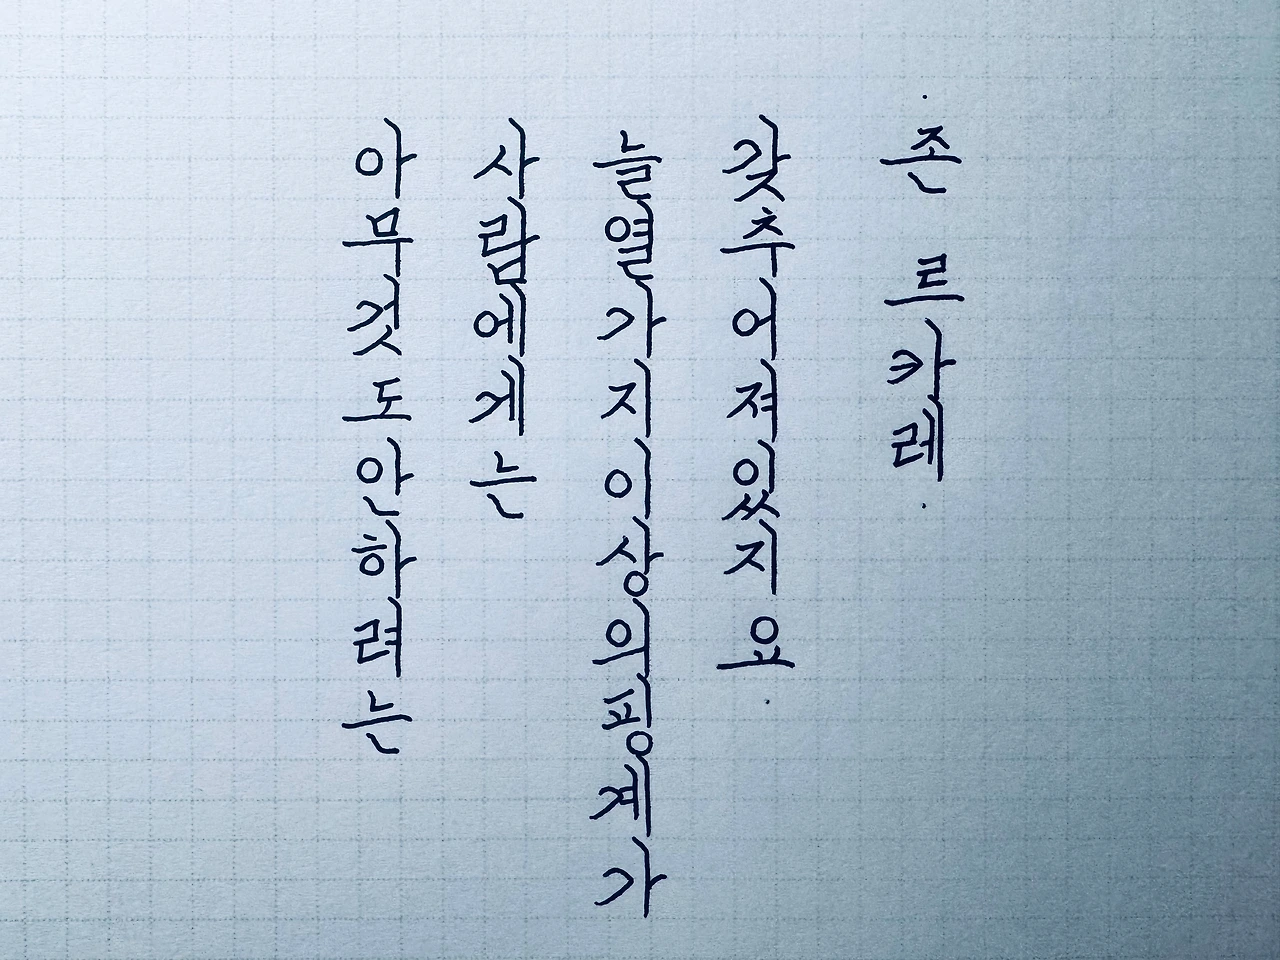 아무것도안하려는
사람에게는
늘열가지이상의핑계가
갖추어져있지요.
·존 르카레·